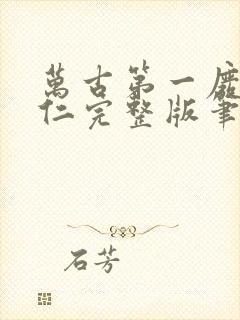 萬古第一廢
仁完整版筆
石芳